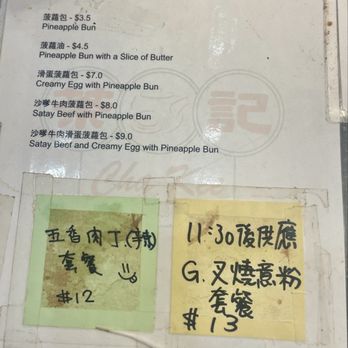 菠蘿包 - $3.5
Pineapple Bun
菠蘿油 - $4.5
Pineapple Bun with a Slice of Butter
滑蛋菠蘿包 - $7.0
Creamy Egg with Pineapple Bun
沙嗲牛肉菠蘿包 - $8.0
Satay Beef with Pineapple Bun
沙嗲牛肉滑蛋菠蘿包 - $9.0
Satay Beef and Creamy Egg with Pineapple Bun
記
五香肉丁
套餐
#12
11:30後供應
G. 叉燒意粉
套餐
$13